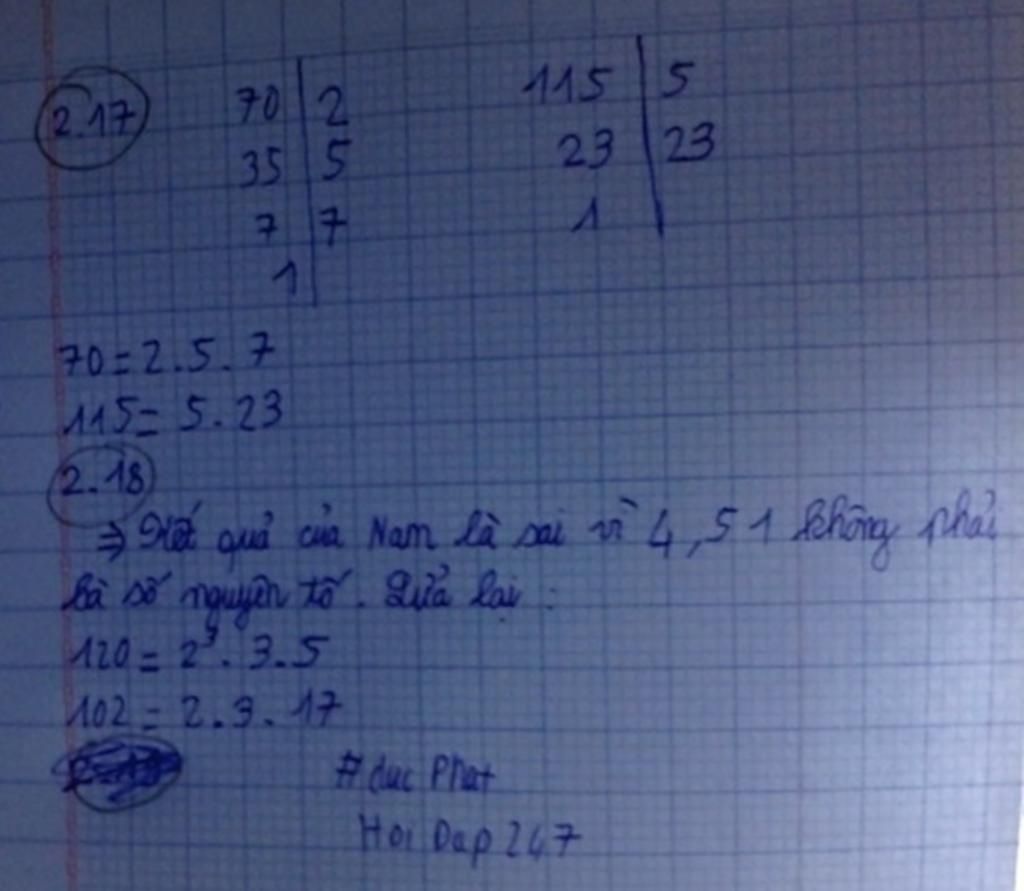 2.17 70 | 2 115 | 5
35 | 5 23 | 23
7 | 7 1
1
70 = 2.5.7
115 = 5.23
2.18
⇒ Kết quả của Nam là sai vì 4, 51 không phải
là số nguyên tố. Sửa lại :
120 = 2³.3.5
102 = 2.3.17
#duc Phat
Hoi Dap 247